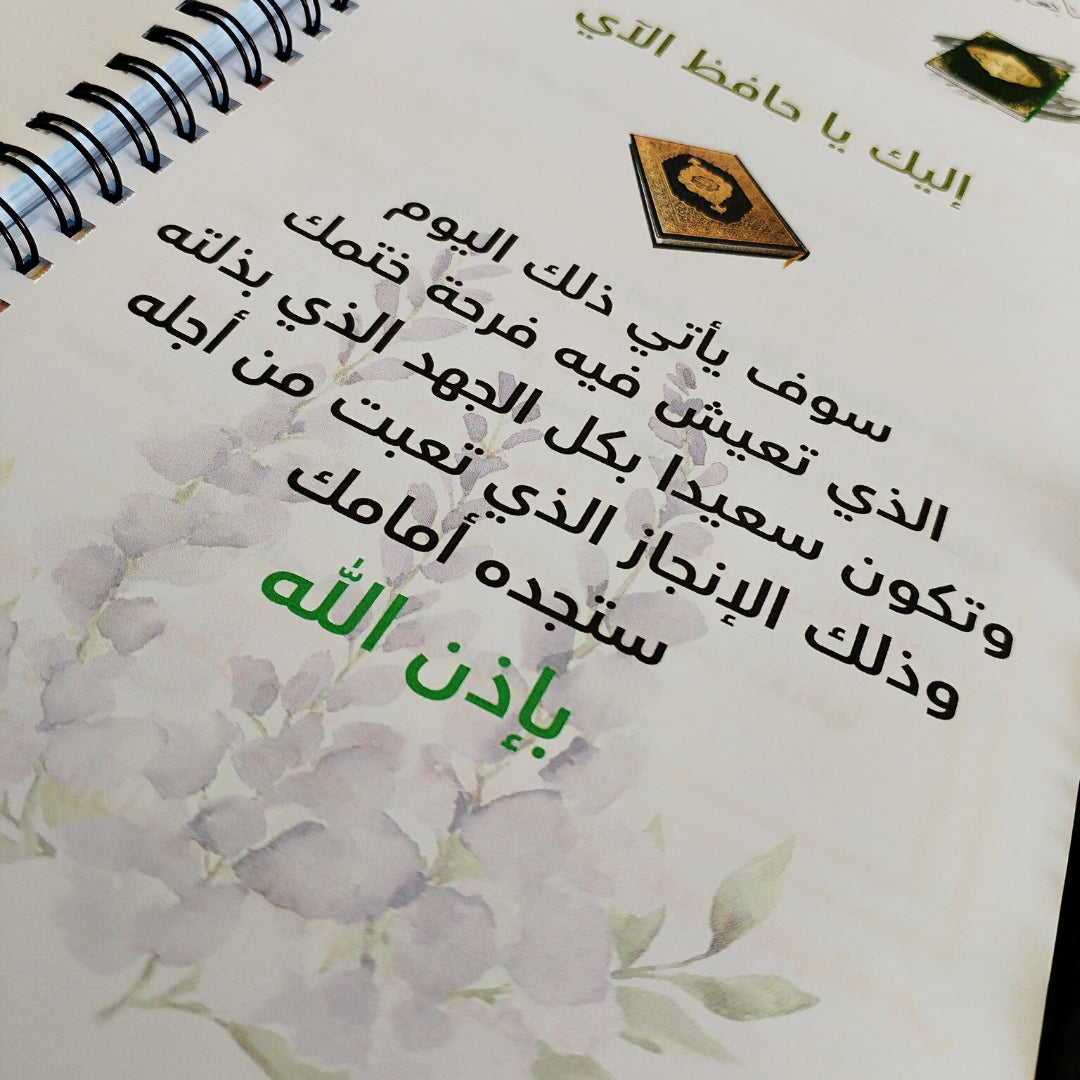 إليك يا حافظ الآي
سوف يأتي ذلك اليوم
الذي تعيش فيه فرحة ختمك
وتكون سعيدا بكل الجهد الذي بذلته
وذلك الإنجاز الذي تعبت من أجله
ستجده أمامك
بإذن الله